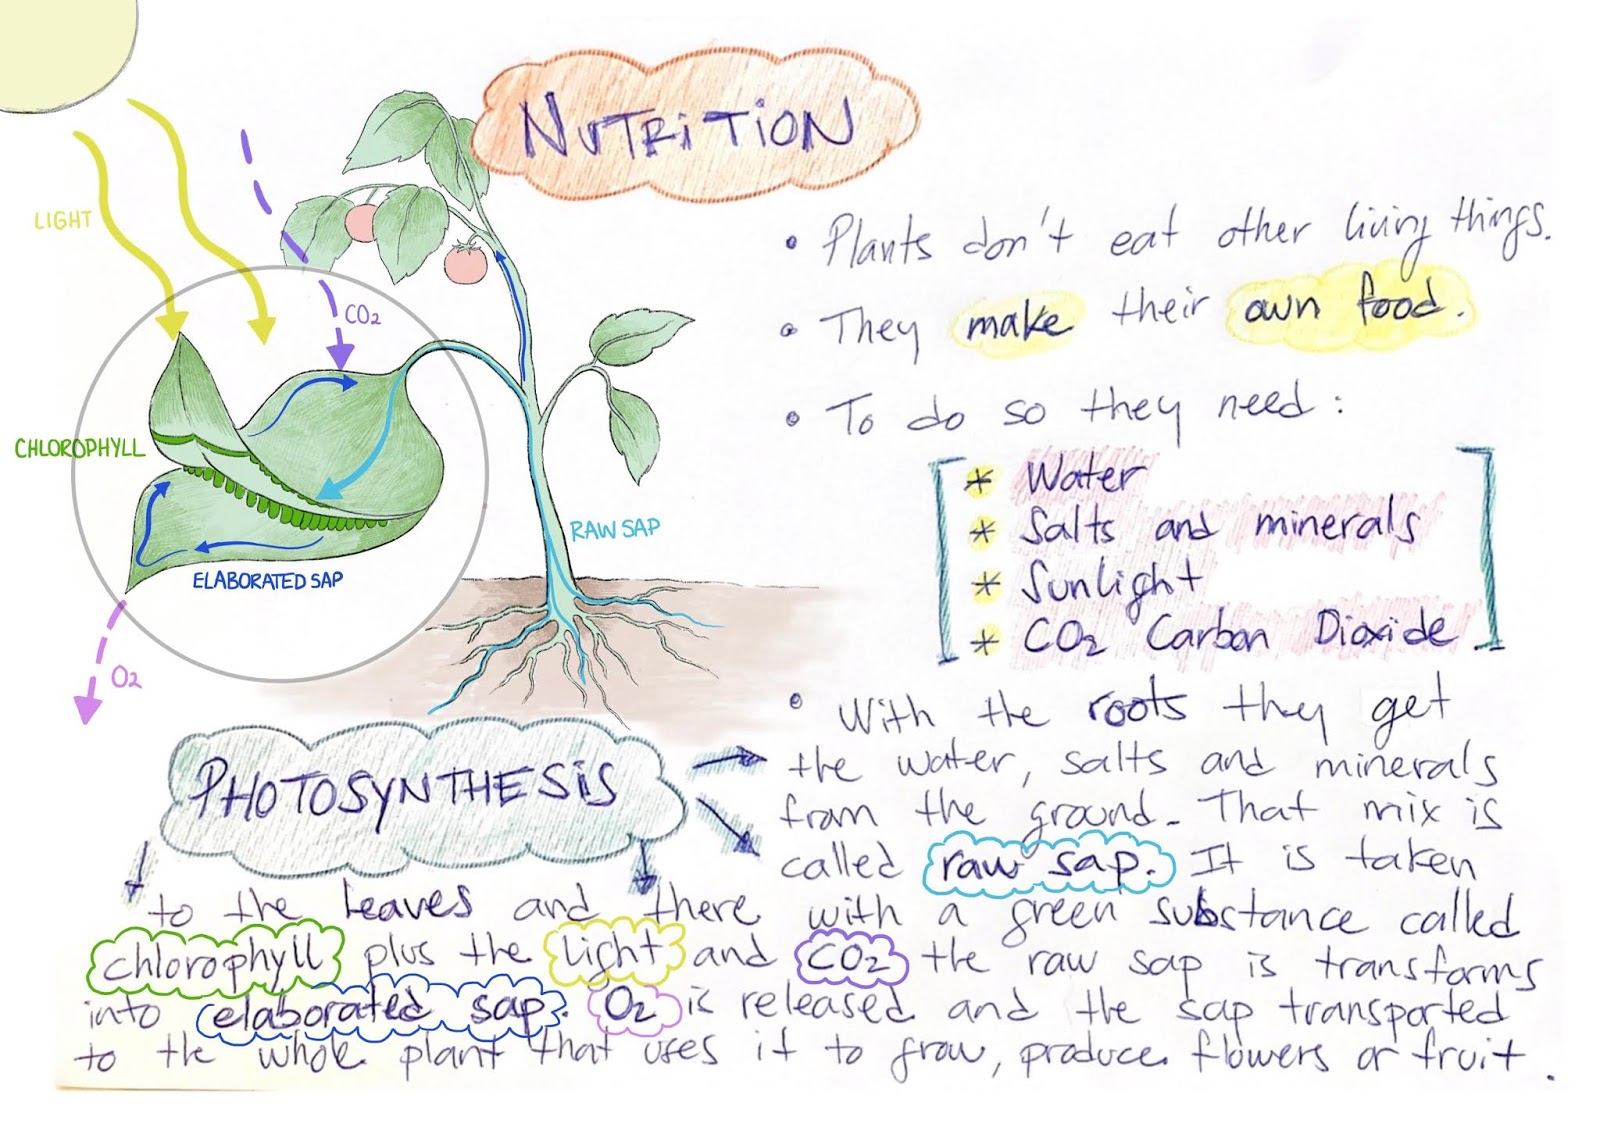 NUTRITION
LIGHT
CO2
CHLOROPHYLL
ELABORATED SAP
RAW SAP
O2
• Plants don't eat other living things.
• They make their own food.
• To do so they need:
* Water
* Salts and minerals
* Sunlight
* CO2 Carbon Dioxide
PHOTOSYNTHESIS
• With the roots they get
the water, salts and minerals
from the ground. That mix is
called raw sap. It is taken
to the leaves and there with a green substance called
chlorophyll plus the light and CO2 the raw sap is transforms
into elaborated sap. O2 is released and the sap transported
to the whole plant that uses it to grow, produce flowers or fruit.